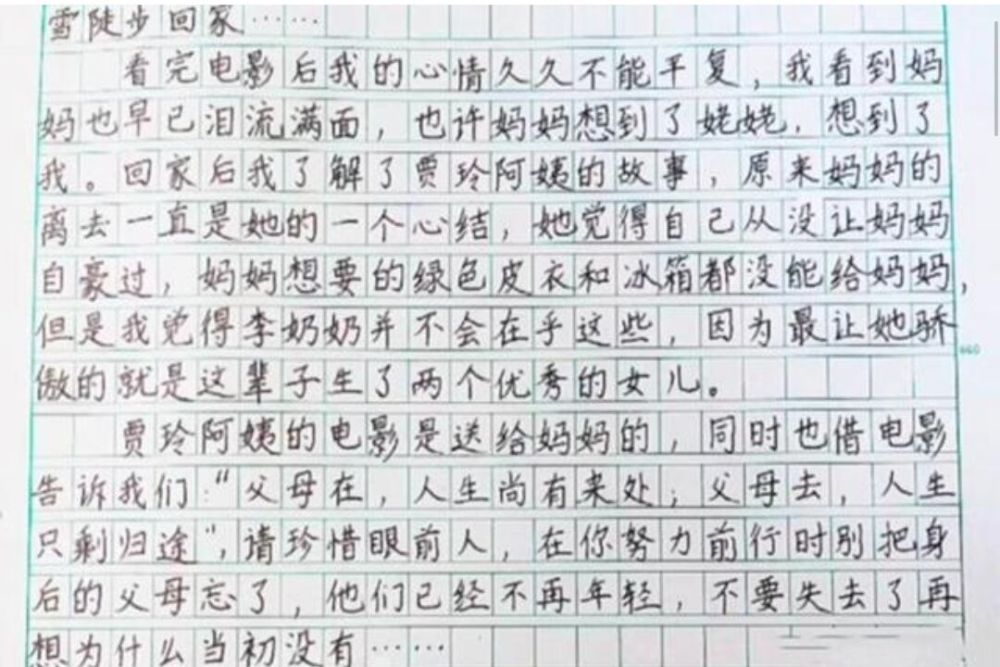 雪陡步回家……
看完电影后我的心情久久不能平复，我看到妈
妈也早已泪流满面，也许妈妈想到了姥姥，想到了
我。回家后我了解了贾玲阿姨的故事，原来妈妈的
离去一直是她的一个心结，她觉得自己从没让妈妈
自豪过，妈妈想要的绿色皮衣和冰箱都没能给妈妈，
但是我觉得李奶奶并不会在乎这些，因为最让她骄
傲的就是这辈子生了两个优秀的女儿。
贾玲阿姨的电影是送给妈妈的，同时也借电影
告诉我们：“父母在，人生尚有来处；父母去，人生
只剩归途”，请珍惜眼前人，在你努力前行时别把身
后的父母忘了，他们已经不再年轻，不要失去了再
想为什么当初没有……